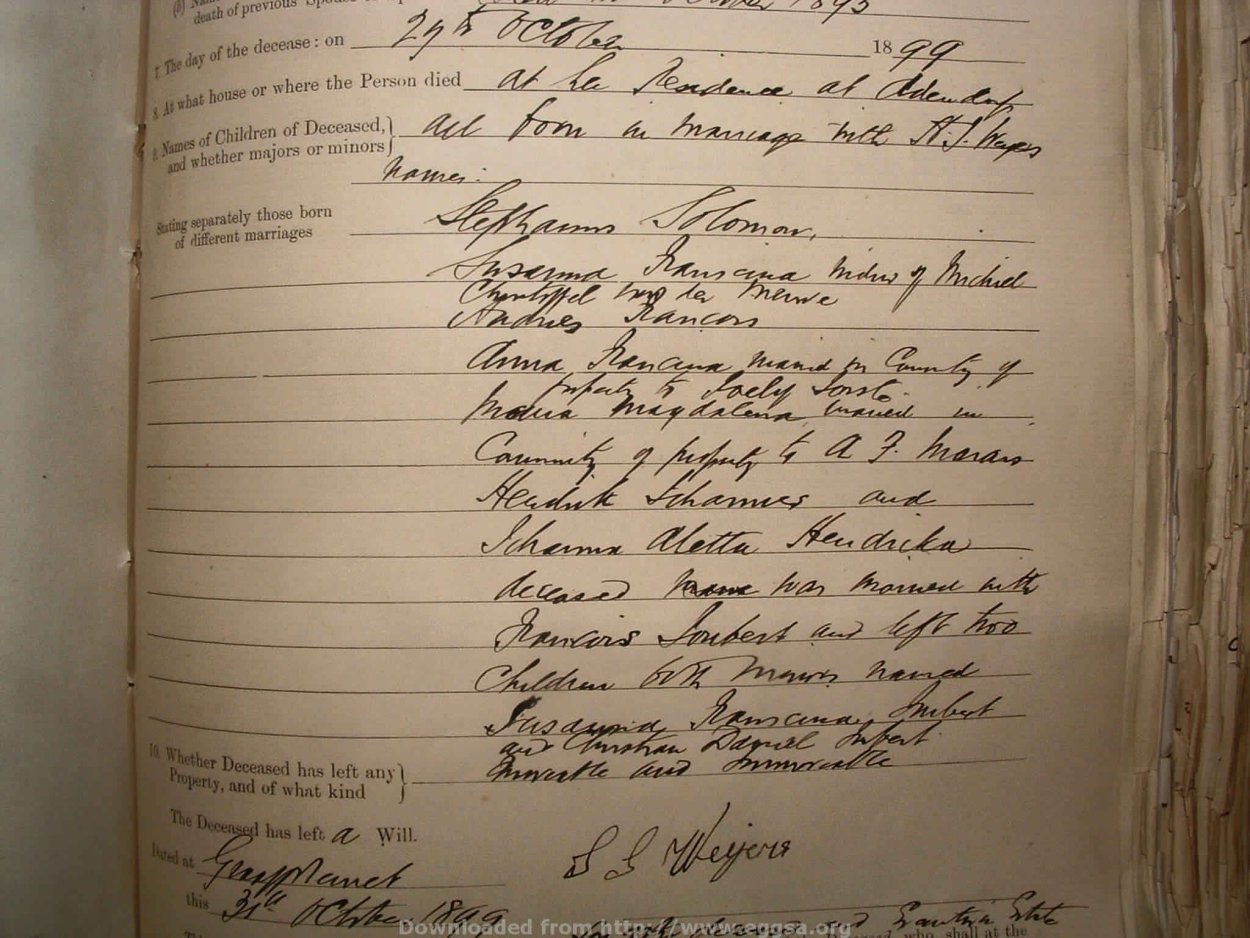 death of previous Spouse 1893
7. The day of the decease : on 29th October 1899
8. At what house or where the Person died at her Residence at Adendorp
9. Names of Children of Deceased, and whether majors or minors } all born in marriage with
names:
Stating separately those born of different marriages
Stephanus Solomon,
Susanna Franscina widow of Michiel
Christoffel van der Merwe
Andries Francois
Anna Franscina married in Community of
property to
Maria Magdalena married in
Community of property to A F. Marais
Hendrik Johannes and
Johanna Aletta Hendrika
deceased was married with
Francois Joubert and left two
Children both minors named
Susanna Franscina Joubert
and Christian Daniel Joubert
10. Whether Deceased has left any Property, and of what kind } Movable and Immovable
The Deceased has left a Will.
S S Weijers
Dated at Graaff Reinet
this 31st October 1899
Downloaded from http://www.eggsa.org
who shall at the